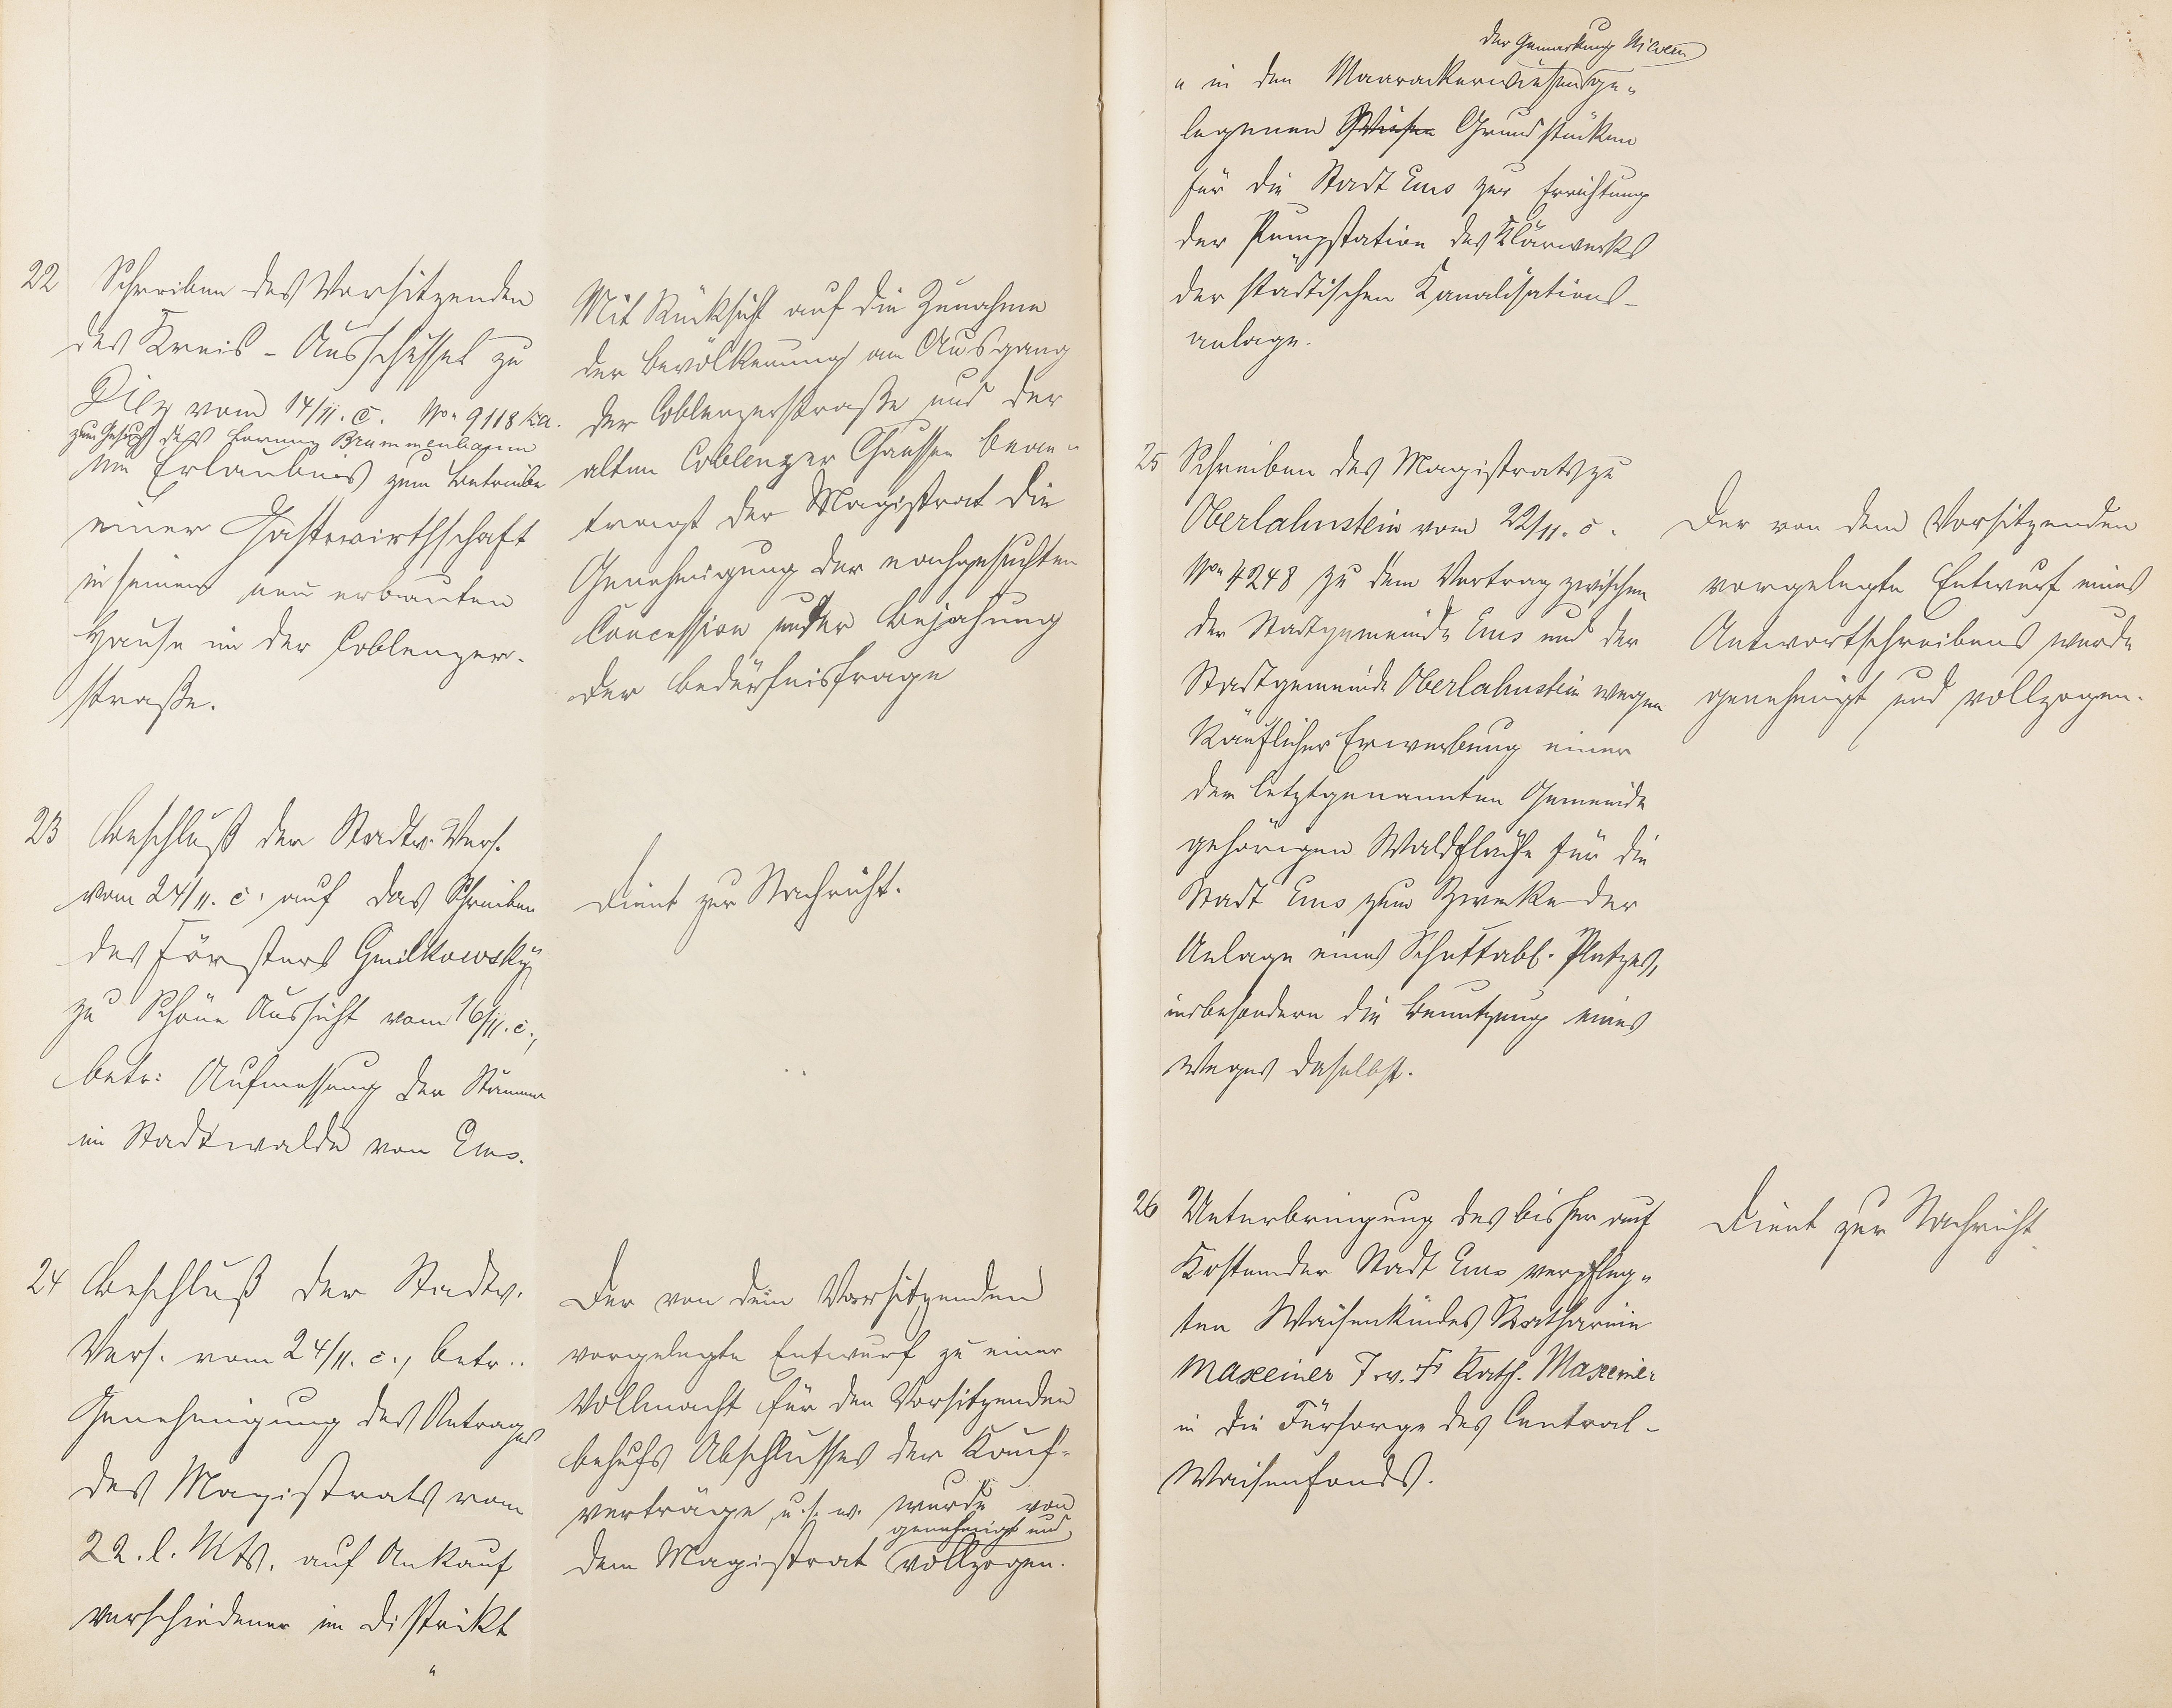 22
Schreiben des Vorsitzenden
des Kreis-Ausschusses zu
Diez vom 14/11. c. No. 9118 Ka.
zum Gesuch des Brummenbaum
um Erlaubnis zum Betriebe
einer Gastwirthschaft
in seinem neu erbauten
Hause in der Coblenzer-
straße.
Mit Rücksicht auf die Zunahme
der Bevölkerung am Ausgang
der Coblenzerstraße und der
alten Coblenzer Chaussee bean-
tragt der Magistrat die
Genehmigung der nachgesuchten
Concession unter Bejahung
der Bedürfnisfrage
23
Beschluß der Stadtv. Vers.
vom 24/11. c. auf das Schreiben
des Försters Gmilkowsky
zu Schöne Aussicht vom 16/11. c.,
betr: Aufmessung der Stämme
im Stadtwalde von Ems.
Dient zur Nachricht.
24
Beschluß der Stadtv.
Vers. vom 24/11. c., betr.
Genehmigung des Antrages
des Magistrats vom
22. l. Mts. auf Ankauf
verschiedener im Distrikt
"
Der von dem Vorsitzenden
vorgelegte Entwurf zu einer
Vollmacht für den Vorsitzenden
behufs Abschlusses der Kauf-
verträge u. s. w. wurde von
genehmigt und
dem Magistrat vollzogen.
der Gemarkung Nievern
" in den Maarackerwiesen ge-
legenen Wiesen Grundstücken
für die Stadt Ems zur Errichtung
der Pumpstation des Klärwerks
der städtischen Kanalisations-
anlage.
25
Schreiben des Magistrats zu
Oberlahnstein vom 22/11. c.
No. 4248 zu dem Vertrag zwischen
der Stadtgemeinde Ems und der
Stadtgemeinde Oberlahnstein wegen
käuflicher Erwerbung einer
der letztgenannten Gemeinde
gehörigen Waldfläche für die
Stadt Ems zum Zwecke der
Anlage eines Schuttabl. Platzes,
insbesondere die Benutzung eines
Weges daselbst.
Der von dem Vorsitzenden
vorgelegte Entwurf eines
Antwortschreibens wurde
genehmigt und vollzogen.
26
Unterbringung des bisher auf
Kosten der Stadt Ems verpfleg-
ten Waisenkindes Katharine
Maxeiner T. v. Fr. Kath. Maxeiner
in die Fürsorge des Central-
Waisenfonds.
Dient zur Nachricht